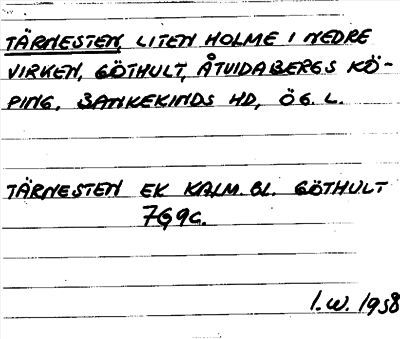 TÄRNESTEN, LITEN HOLME I NEDRE
VIRKEN, GÖTHULT, ÅTVIDABERGS KÖ-
PING. BANKEKINDS HD, ÖG. L.
TÄRNESTEN EK KALM. BL. GÖTHULT
7G9c.
I.W. 1958